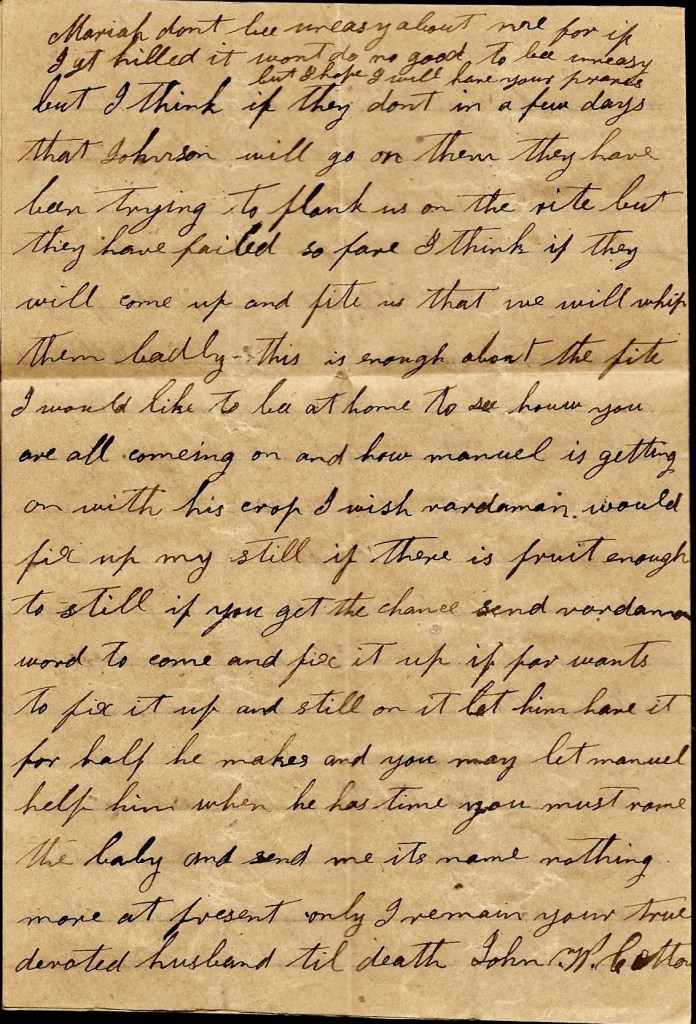 Mariah dont bee uneasy about me for if
I git killed it wont do no good to be uneasy
but I hope I will have your prares
but I think if they dont in a few days
that Johnson will go on them they have
ben trying to flank us on the rite but
they have failed so fare I think if they
will come up and fite us that we will whip
them badly this is enough about the fite
I would like to be at home to see houw you
are all comeing on and how manuel is getting
on with his crop I wish vardaman would
fix up my still if there is fruit enough
to still if you get the chance send vardaman
word to come and fix it up if par wants
to fix it up and still on it let him have it
for half he makes and you may let manuel
help him when he has time you must name
the baby and send me its name nothing
more at present only I remain your true
devoted husband til death John W. Cotton